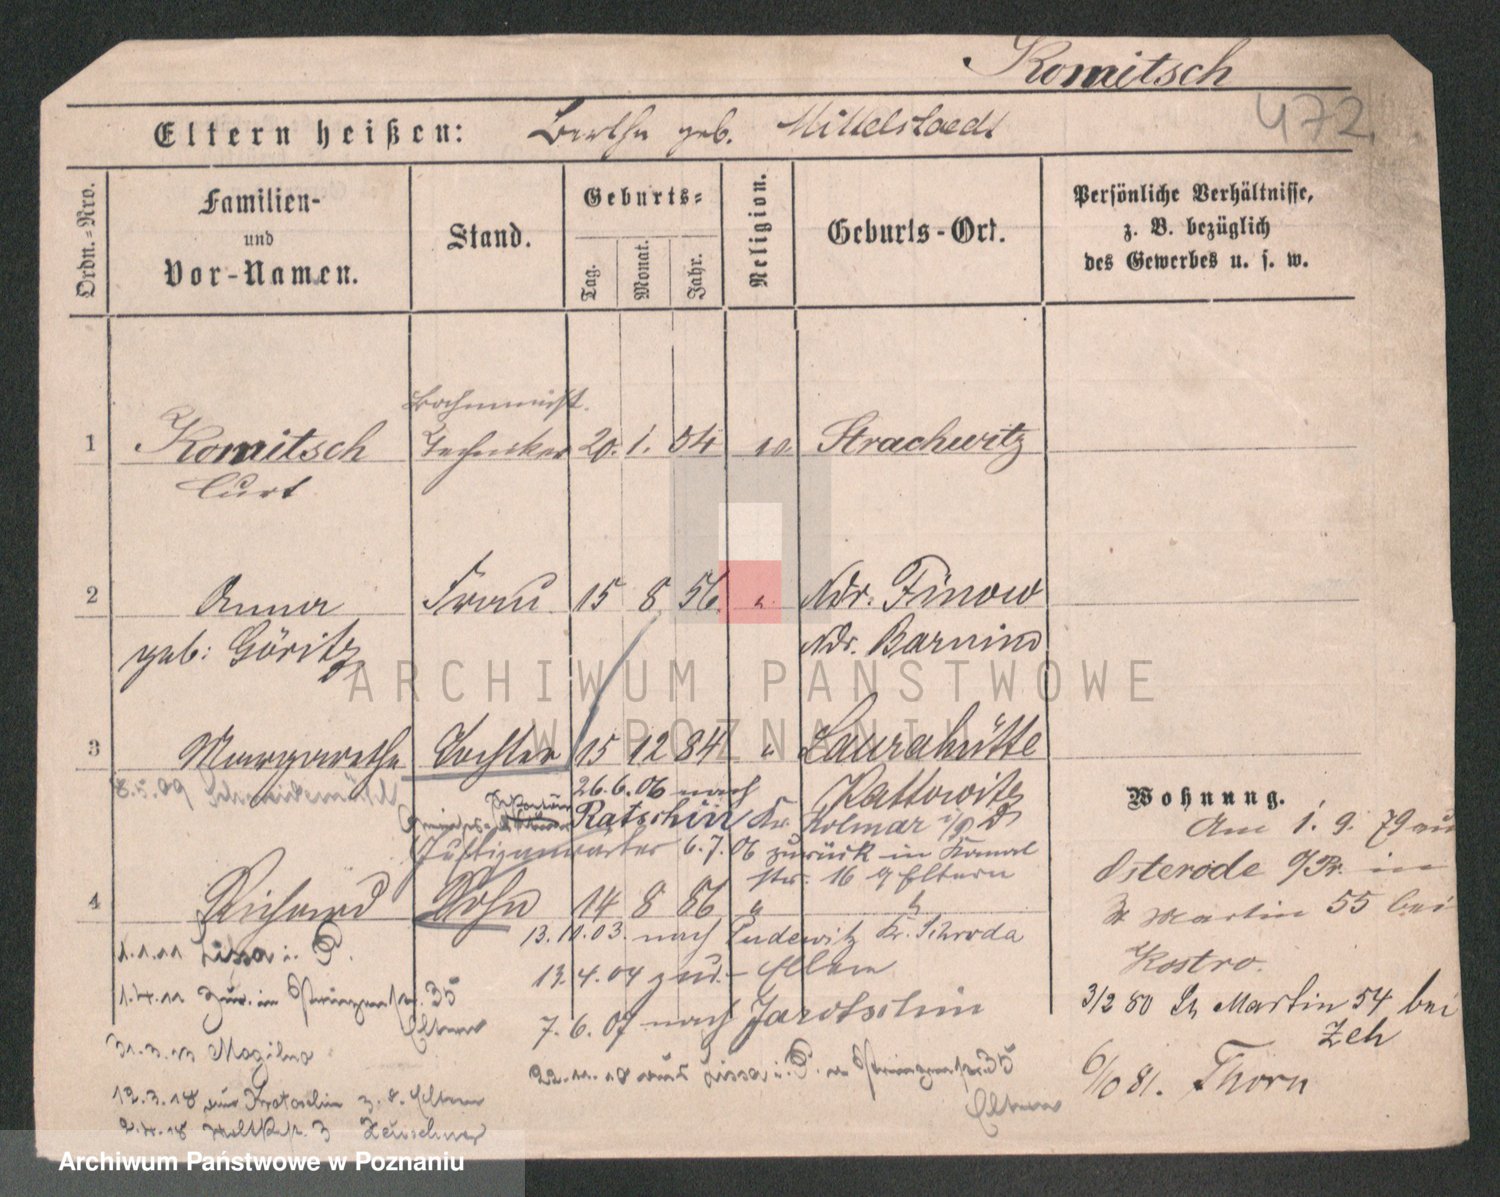 Komitsch
472
Eltern heißen: Bertha geb. Mittelstaedt
Ordn.-Nro.
Familien- und Vor-Namen.
Stand.
Geburts-
Tag.
Monat.
Jahr.
Religion.
Geburts-Ort.
Persönliche Verhältnisse,
z. B. bezüglich
des Gewerbes u. s. w.
1 Komitsch Techniker 20. 1. 54 Strachwitz
Curt
2 Anna Frau 15 8 56 " Ndr. Finow
geb: Göritz Ndr. Barnim
3 Margarethe Tochter 15 12 84 " Laurahütte
Kattowitz
8.5.09 Schneidemühl
26.6.06 nach
Ratschin Kr. Kolmar i/P
Justizanwärter 6.7.06 zurück in Kanal
str. 16 z Eltern
4 Richard Sohn 14 8 86 " "
13.10.03. nach Pudewitz Kr. Schroda
13.4.04 zur. Eltern
7.6.07 nach Jarotschin
22.11.10 Lissa i. P. 35
Eltern
1.1.11 Lissa i. P.
1.4.11 zur. in 35
Eltern
31.3.13 Mogilno
12.3.18 aus Krotoschin z. d. Eltern
2.4.18 3
Wohnung.
Am 1. 9. 79 aus
Osterode O/Pr. in
St Martin 55 bei
Kostro.
3/2 80 St Martin 54 bei
Zeh
6/10 81. Thorn
ARCHIWUM PAŃSTWOWE
W POZNANIU
Archiwum Państwowe w Poznaniu